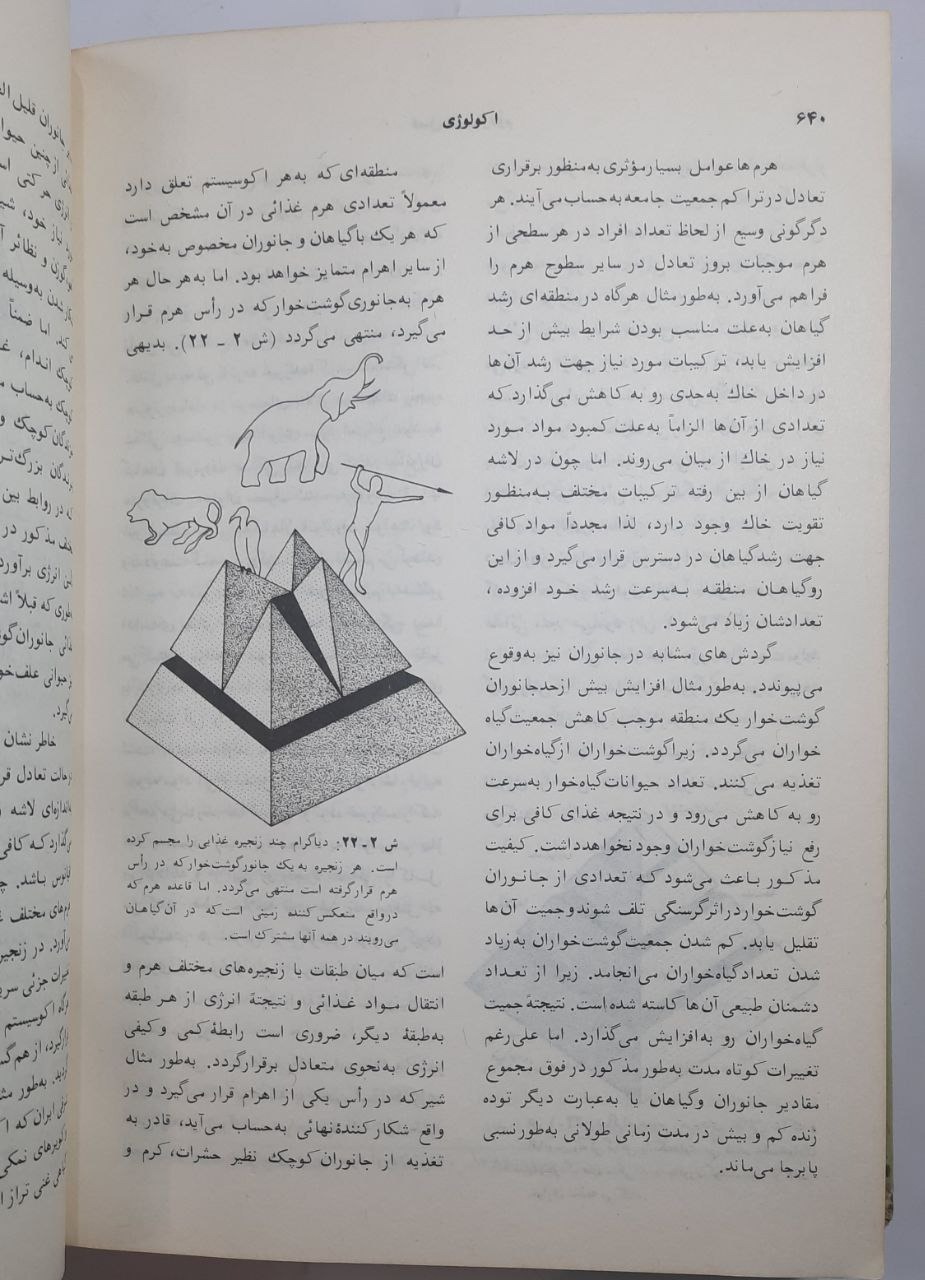 ۶۴۰
اکولوژی
هرم‌ها عوامل بسیار مؤثری به‌منظور برقراری
تعادل در تراکم جمعیت جامعه به‌حساب می‌آیند. هر
دگرگونی وسیع از لحاظ تعداد افراد در هر سطحی از
هرم موجبات بروز تعادل در سایر سطوح هرم را
فراهم می‌آورد. به‌طور مثال هرگاه در منطقه‌ای رشد
گیاهان به‌علت مناسب بودن شرایط بیش از حد
افزایش یابد، ترکیبات مورد نیاز جهت رشد آن‌ها
در داخل خاك به‌حدی رو به کاهش می‌گذارد که
تعدادی از آن‌ها الزاماً به‌علت کمبود مواد مورد
نیاز در خاك از میان می‌روند. اما چون در لاشه
گیاهان از بین رفته ترکیبات مختلف به‌منظور
تقویت خاك وجود دارد، لذا مجدداً مواد کافی
جهت رشد گیاهان در دسترس قرار می‌گیرد و از این
رو گیاهان منطقه به‌سرعت رشد خود افزوده،
تعدادشان زیاد می‌شود.
گردش‌های مشابه در جانوران نیز به‌وقوع
می‌پیوندد. به‌طور مثال افزایش بیش از حد جانوران
گوشت‌خوار یك منطقه موجب کاهش جمعیت گیاه
خواران می‌گردد. زیرا گوشت‌خواران از گیاه‌خواران
تغذیه می‌کنند. تعداد حیوانات گیاه‌خوار به‌سرعت
رو به کاهش می‌رود و در نتیجه غذای کافی برای
رفع نیاز گوشت‌خواران وجود نخواهد داشت. کیفیت
مذکور باعث می‌شود که تعدادی از جانوران
گوشت‌خوار در اثر گرسنگی تلف شوند و جمیت آن‌ها
تقلیل یابد. کم شدن جمعیت گوشت‌خواران به زیاد
شدن تعداد گیاه‌خواران می‌انجامد. زیرا از تعداد
دشمنان طبیعی آن‌ها کاسته شده است. نتیجتهٔ جمیت
گیاه‌خواران رو به‌افزایش می‌گذارد. اما علی‌رغم
تغییرات کوتاه مدت به‌طور مذکور در فوق مجموع
مقادیر جانوران و گیاهان یا به‌عبارت دیگر توده
زنده کم و بیش در مدت زمانی طولانی به‌طور نسبی
پابرجا می‌ماند.
منطقه‌ای که به‌هر اکوسیستم تعلق دارد
معمولاً تعدادی هرم غذائی در آن مشخص است
که هر یك با گیاهان و جانوران مخصوص به‌خود،
از سایر اهرام متمایز خواهد بود. اما به‌هر حال هر
هرم به‌جانوری گوشت‌خوار که در رأس هرم قرار
می‌گیرد، منتهی می‌گردد (ش ۲ ـ ۲۲). بدیهی
ش ۲ـ۲۲: دیاگرام چند زنجیره غذایی را مجسم کرده
است. هر زنجیره به یك جانور گوشت‌خوار که در رأس
هرم قرار گرفته است منتهی می‌گردد. اما قاعده هرم که
در واقع منعکس کننده زمینی است که در آن گیاهان
می‌رویند در همه آنها مشترك است.
است که میان طبقات یا زنجیره‌های مختلف هرم و
انتقال مواد غذائی و نتیجتهٔ انرژی از هر طبقه
به‌طبقهٔ دیگر، ضروری است رابطهٔ کمی و کیفی
انرژی به‌نحوی متعادل برقرار گردد. به‌طور مثال
شیر که در رأس یکی از اهرام قرار می‌گیرد و در
واقع شکار کنندهٔ نهائی به‌حساب می‌آید، قادر به
تغذیه از جانوران کوچك نظیر حشرات، کرم و